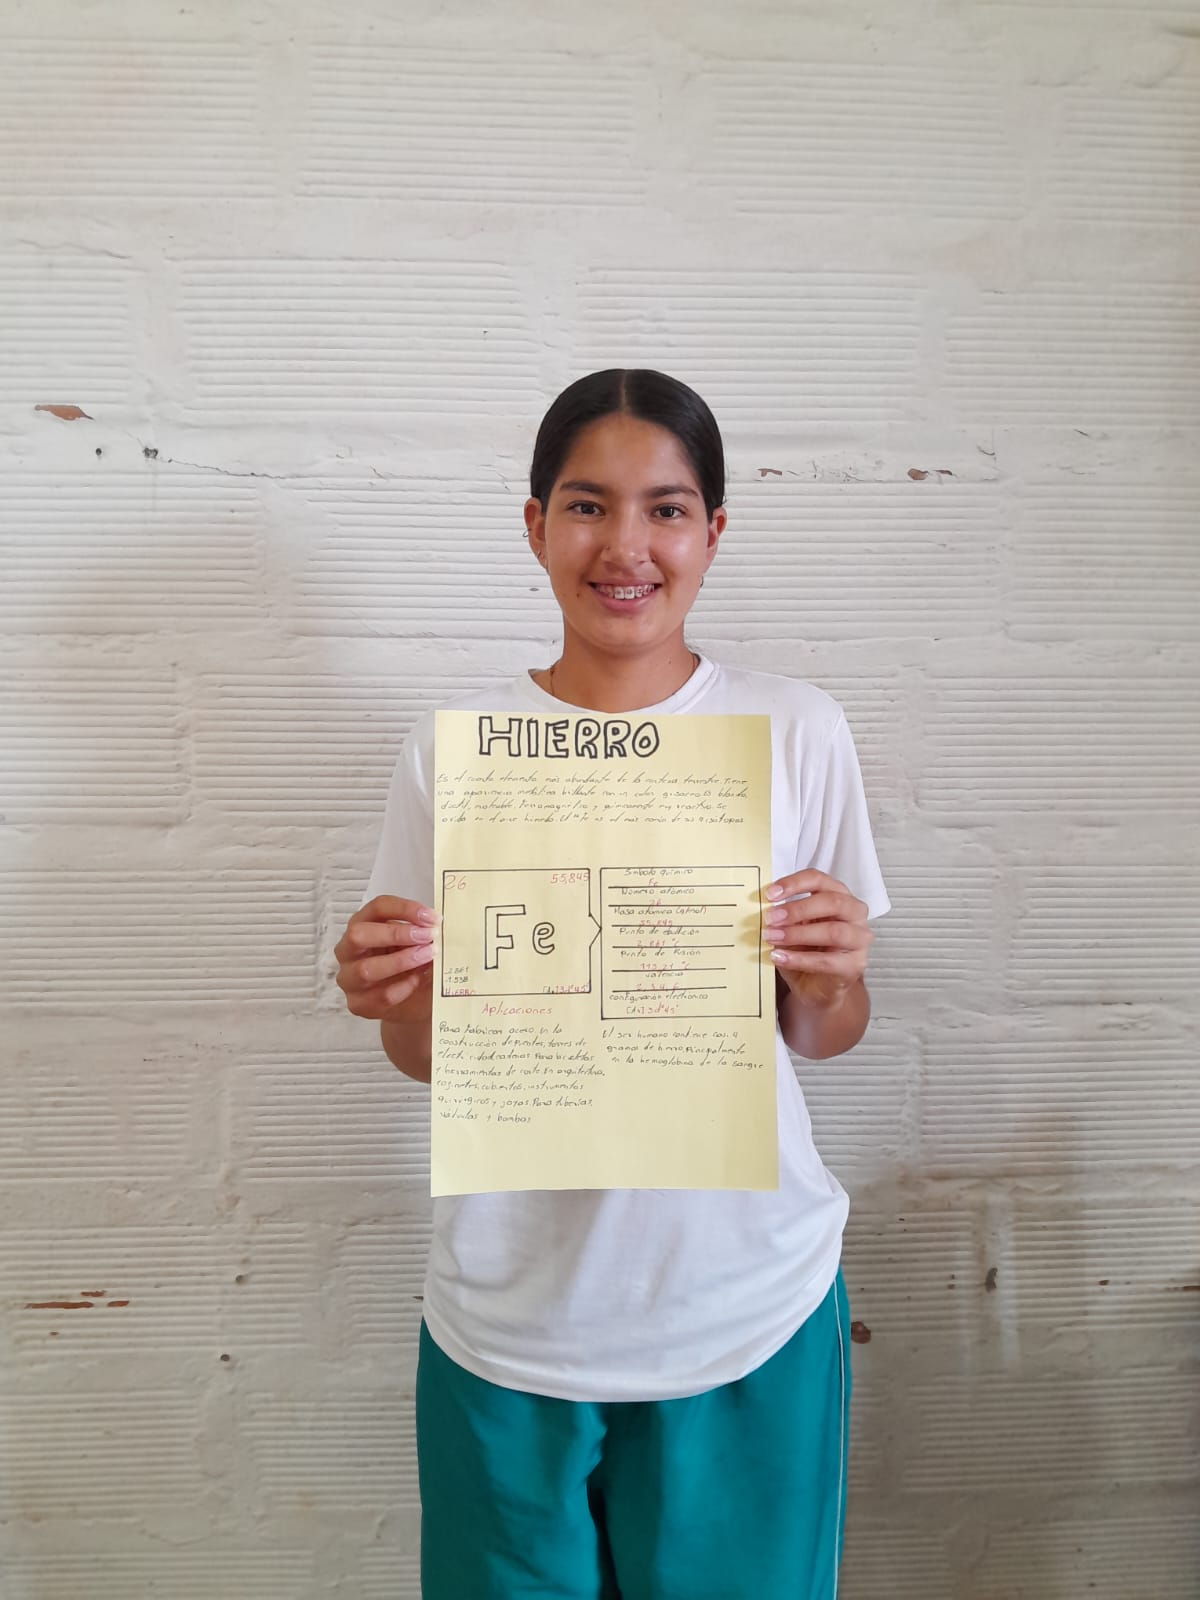 HIERRO
Es el cuarto elemento más abundante de la corteza terrestre. Tiene
una apariencia metálica brillante con un color grisaceo. Es blando,
dúctil, maleable, ferromagnético y químicamente muy reactivo. Se
oxida en el aire húmedo. El Fe es el más común de sus isótopos
26 55,845
Fe
2861
1538
HIERRO [Ar]3d⁶4s²
Símbolo químico
Fe
Número atómico
26
Masa atómica (g/mol)
55,845
Punto de ebullición
2,861 °C
Punto de fusión
°C
valencia
2, 3, 4, 6
configuración electrónica
Aplicaciones
Para fabricar acero, en la
construcción de puentes, torres de
electricidad, cadenas Para bicicletas
y herramientas de corte. En arquitectura,
cojinetes, cubiertos, instrumentos
quirúrgicos y joyas. Para tuberías,
válvulas y bombas
El ser humano contiene casi 4
gramos de hierro, principalmente
en la hemoglobina de la sangre